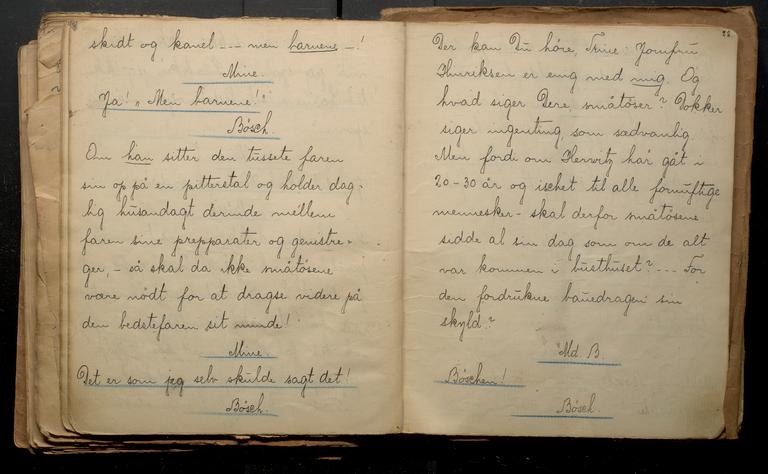 skidt og kanel --- men barnene -!
Mine.
Ja! "Men barnene!"
Bösch.
Om han sitter den tussete faren
sin op på en pitterstal og holder dag-
lig husandagt derinde mellem
faren sine prepparater og genistre-
ger, - så skal da ikke småtösene
være nödt for at dragse videre på
den bedstefaren sit minde!
Mine.
Det er som jeg selv skulde sagt det!
Bösch.
22
Der kan Du höre, Trine: Jomfru
Henriksen er enig med mig. Og
hvad siger Dere, småtöser? Dokker
siger ingenting, som sædvanlig.
Men fordi om Herwitz har gåt i
20-30 år og ischet til alle fornuftige
mennesker - skal derfor småtösene
sidde al sin dag som om de alt
var kommen i busthuset? --- For
den fordrukne bauedragen sin
skyld?
Md B.
Böschen!
Bösch.